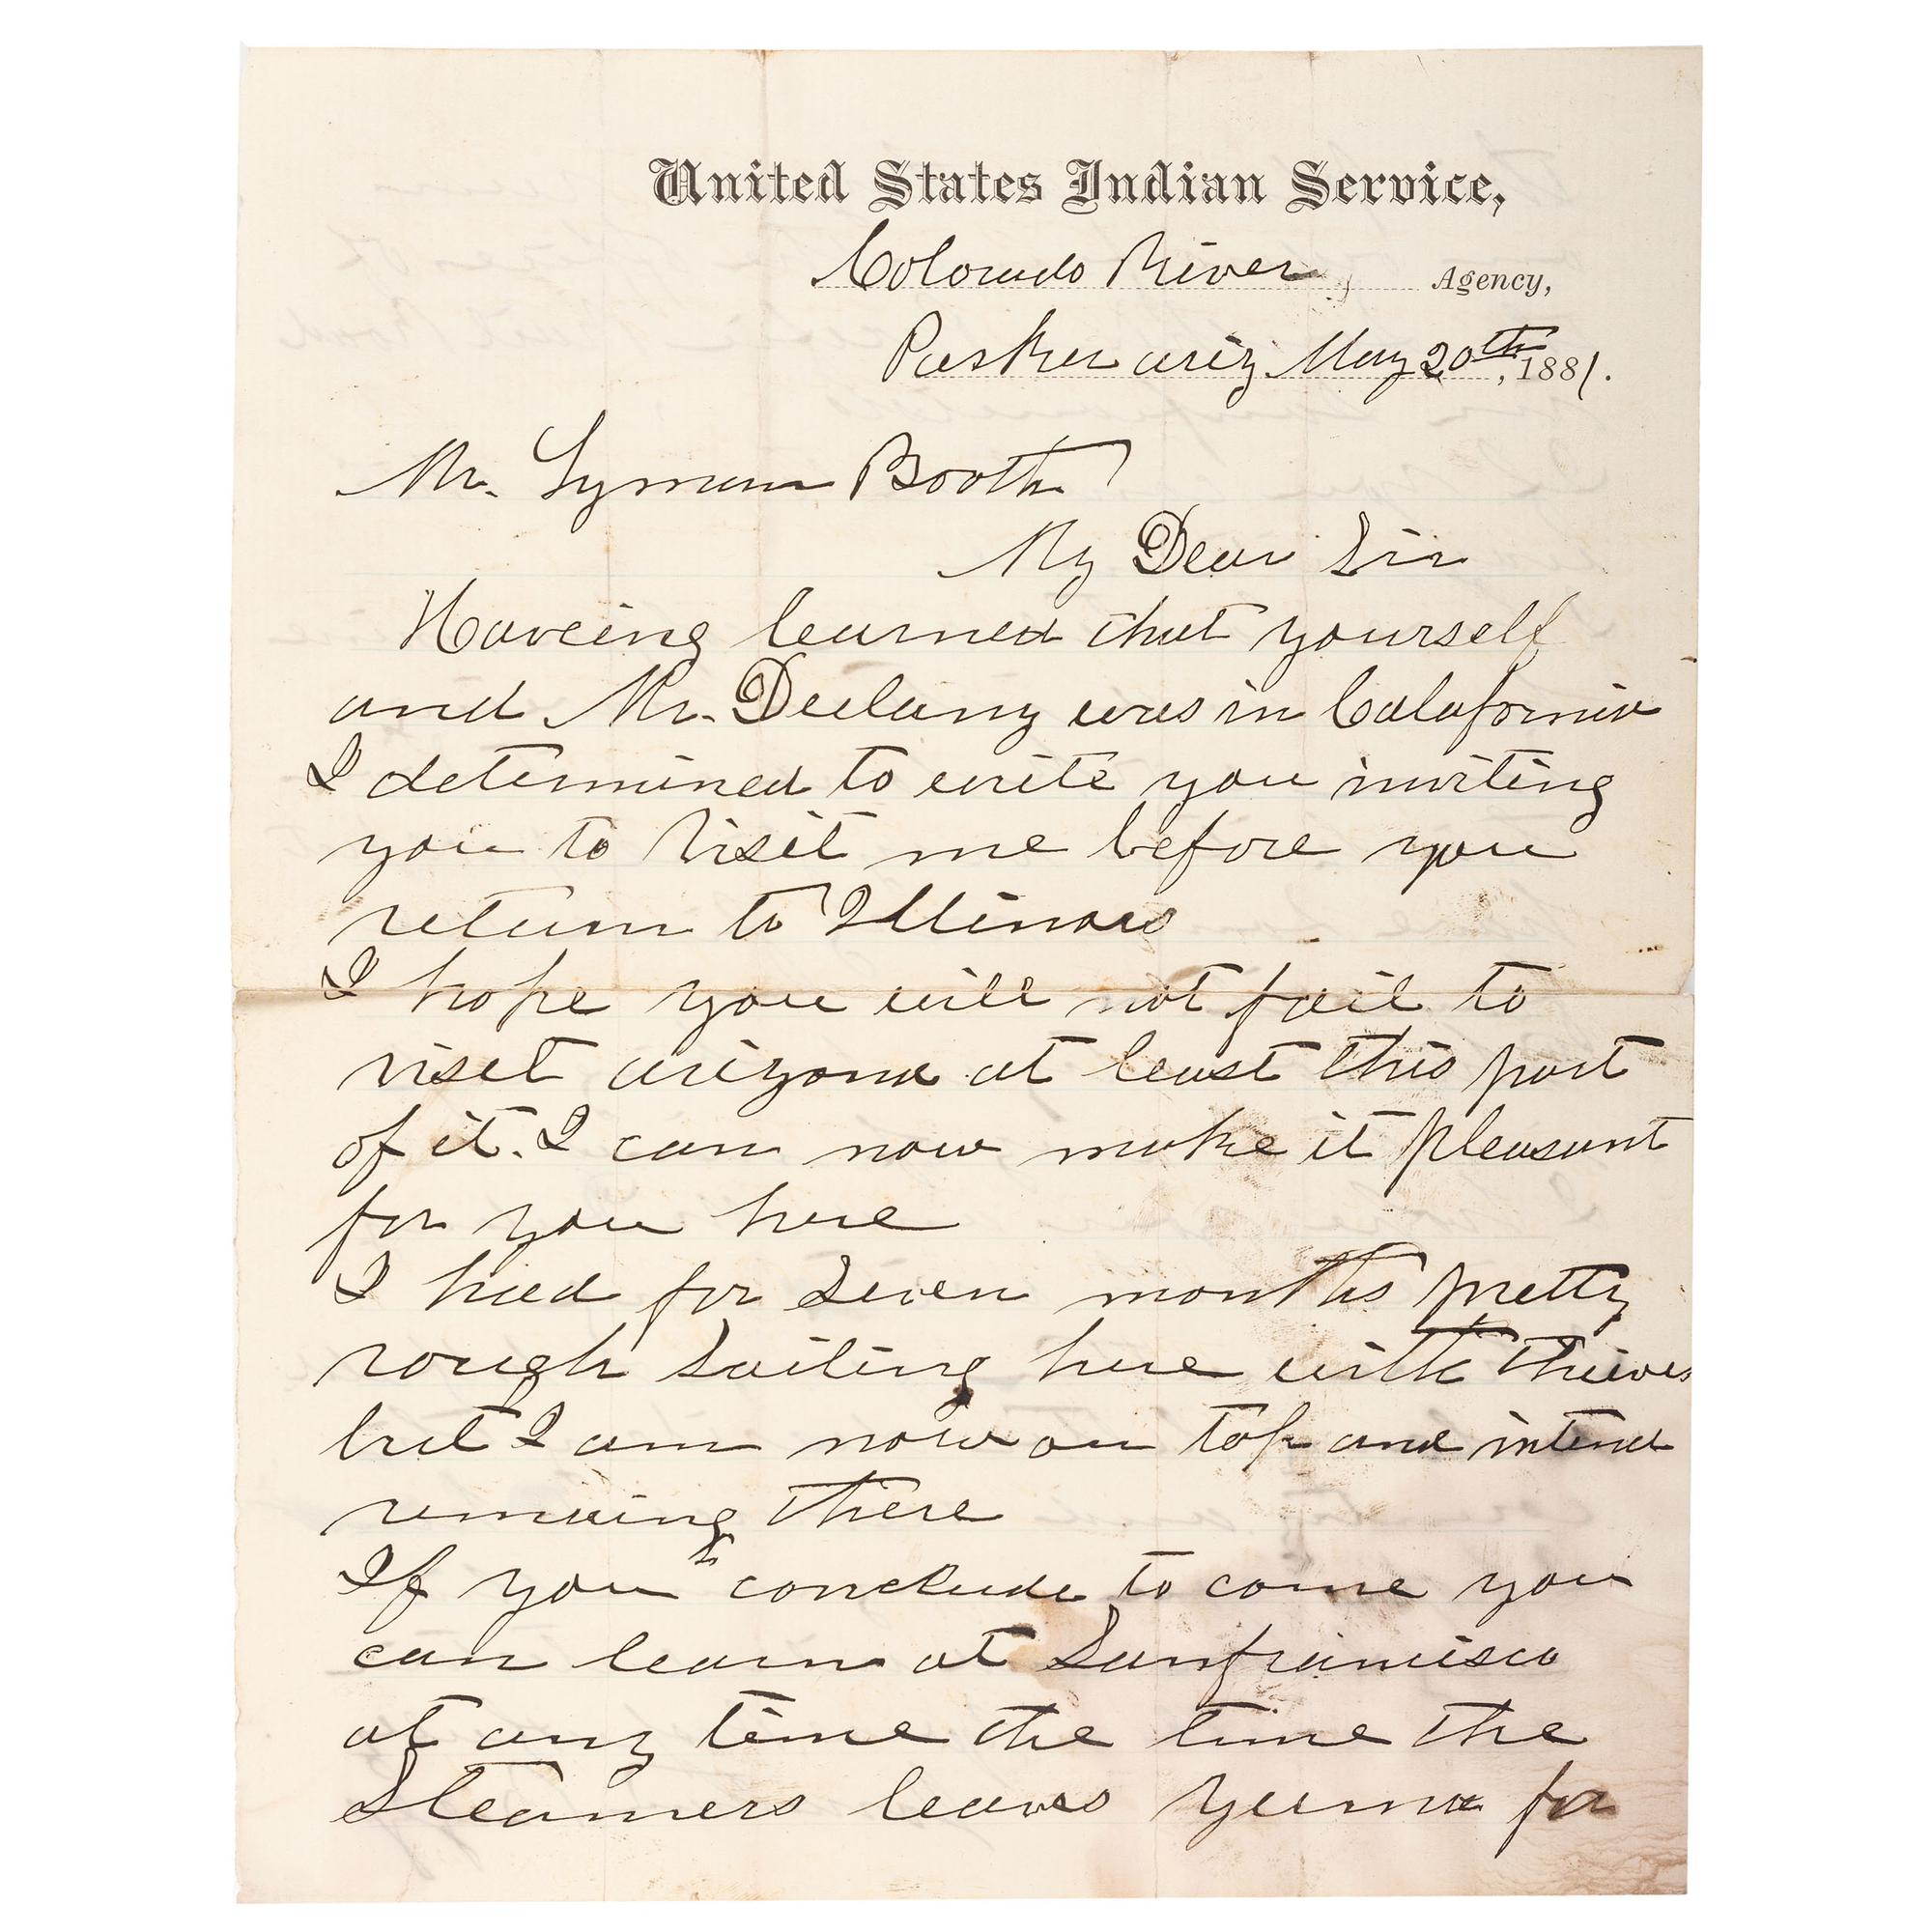 United States Indian Service,
Colorado River, Agency,
Parker ariz May 20th, 1881.
Mr. Lyman Booth
My Dear Sir
Haveing learned that yourself
and Mr. Deelany was in Calafornia
I determined to write you inviting
you to visit me before you
return to Illinois
I hope you will not fail to
viset arizona at least this part
of it. I can now make it pleasant
for you here
I had for Seven months pretty
rough Sailing here with thieves
but I am now on top and intend
remaing there
If you conclude to come you
can learn at Sanfrancisco
at any time the time the
Steamers leaves Yuma for